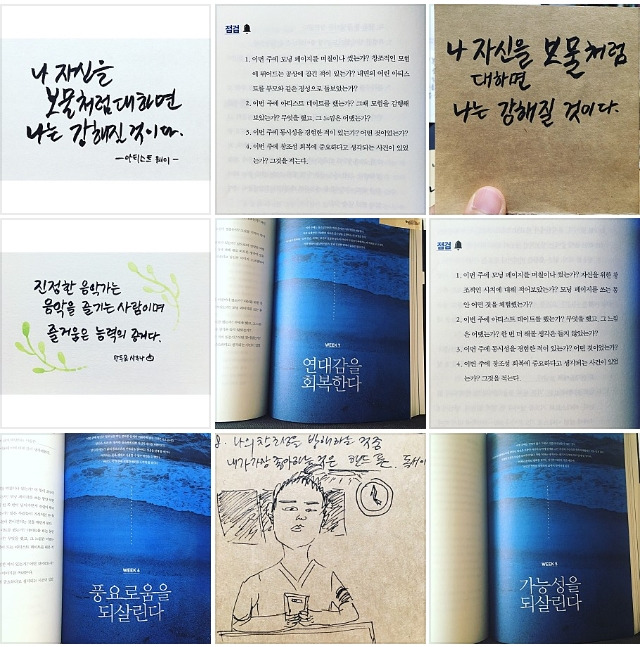 나 자신을
보물처럼대하면
나는 강해질 것이다.
-아티스트 웨이-
점검
1. 이번 주에 모닝 페이지를 며칠이나 썼는가? 창조적인 모험
에 뛰어드는 공상에 잠긴 적이 있는가? 내면의 어린 아티스
트를 부모와 같은 정성으로 돌보았는가?
2. 이번 주에 아티스트 데이트를 했는가? 그때 모험을 감행해
보았는가? 무엇을 했고, 그 느낌은 어땠는가?
3. 이번 주에 동시성을 경험한 적이 있는가? 어떤 것이었는가?
4. 이번 주에 창조성 회복에 중요하다고 생각되는 사건이 있었
는가? 그것을 적는다.
나 자신을 보물처럼
대하면
나는 강해질 것이다.
진정한 음악가는
음악을 즐기는 사람이며
즐거움은 능력의 증거다.
WEEK 7
연대감을
회복한다
점검
1. 이번 주에 모닝 페이지를 며칠이나 썼는가? 자신을 위한 창
조적인 사치에 대해 적어보았는가? 모닝 페이지를 쓰는 동
안 어떤 것을 체험했는가?
2. 이번 주에 아티스트 데이트를 했는가? 무엇을 했고, 그 느낌
은 어땠는가? 한 번 더 해볼 생각은 들지 않았는가?
3. 이번 주에 동시성을 경험한 적이 있는가? 어떤 것이었는가?
4. 이번 주에 창조성 회복에 중요하다고 생각되는 사건이 있었
는가? 그것을 적는다.
WEEK 6
풍요로움을
되살린다
8. 나의 창조성을 방해하는 것중
내가 가장 좋아하는 것은 핸드폰.
WEEK 5
가능성을
되살린다